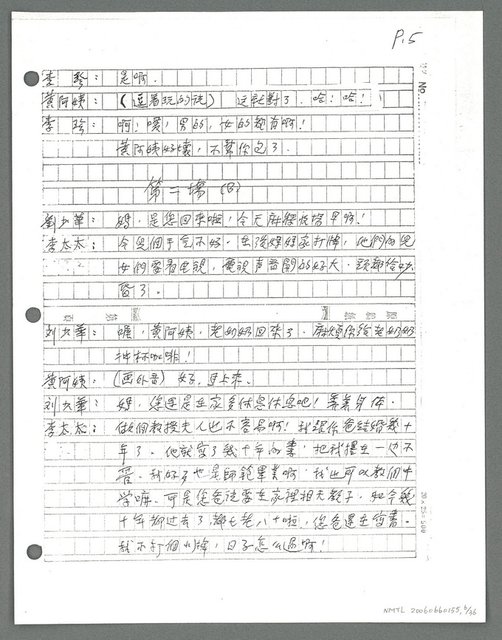 P.5
李玲：是啊．
黃阿姨：（逗着玩的話）这就對了．哈！哈！
李玲：啊！噢，男的，女的都有啊！
黃阿姨好壞，不幫你包了．
第二場（B）
劉大華：媽，是您回來啦，今天麻將收場早啊！
李太太：今兒個手气不好．去張媽媽家打牌，他們的兒
女們要看电視，電視声音開的好大．頭都給吵
昏了．
刘大華：噢，黃阿姨．老奶奶回來了．麻煩你給老奶奶
沖杯咖啡！
黃阿姨：（画外音）好，馬上來．
刘大華：媽．您還是在家多休息休息吧！養養身体．
李太太：做個教授夫人也不容易啊！我跟你爸結婚幾十
年了．他就寫了幾十年的書，把我擺在一边不
管．我好歹也是師範畢業啊，我也可以教個中
學嘛．可是您爸說要在家裡相夫教子．如今幾
十年都过去了．都七老八十啦，您爸還在寫書．
我不打個小牌，日子怎么過啊！
NO.
20×25=500
NMTL 20060660155,